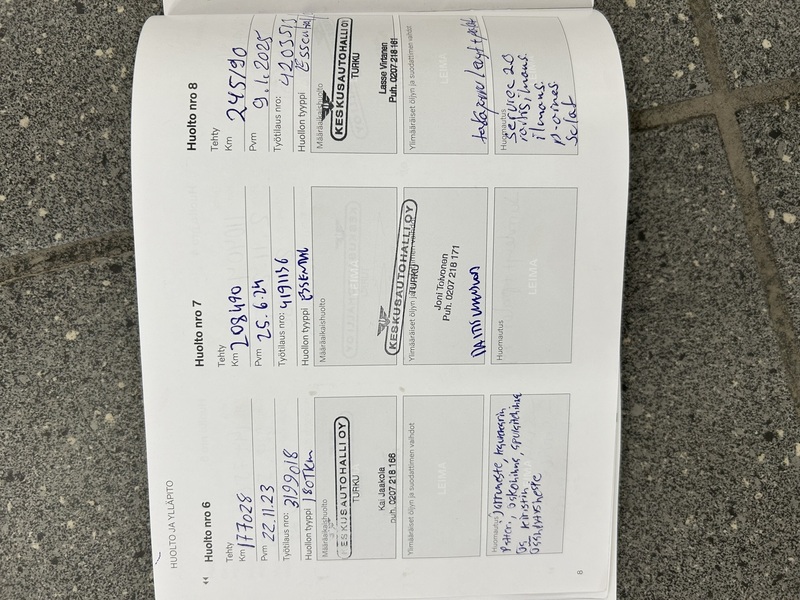 HUOLTO JA YLLÄPITO
Huolto nro 6
Tehty
Km 177028
Pvm 22.11.23
Työtilaus nro: 3199018
Huollon tyyppi 180Tkm
Määräaikaishuolto
KESKUSAUTOHALLI OY
TURKU
Kai Jaakola
puh. 0207 218 166
Ylimääräiset öljyn ja suodattimen vaihdot
LEIMA
Huomautus
jarruneste,
6
Huolto nro 7
Tehty
Km 208490
Pvm 25.6.24
Työtilaus nro: 4191136
Huollon tyyppi ESSENTIAL
Määräaikaishuolto
LEIMA
KESKUSAUTOHALLI OY
TURKU
Ylimääräiset öljyn ja suodattimen vaihdot
Joni Toivonen
Puh. 0207 218 171
Huomautus
LEIMA
Huolto nro 8
Tehty
Km 245190
Pvm 9.1.2025
Työtilaus nro:
Huollon tyyppi
Määräaikaishuolto
KESKUSAUTOHALLI OY
TURKU
Lasse Virtanen
Puh. 0207 218 161
Ylimääräiset öljyn ja suodattimen vaihdot
LEIMA
Huomautus
Service 20
ilmans.